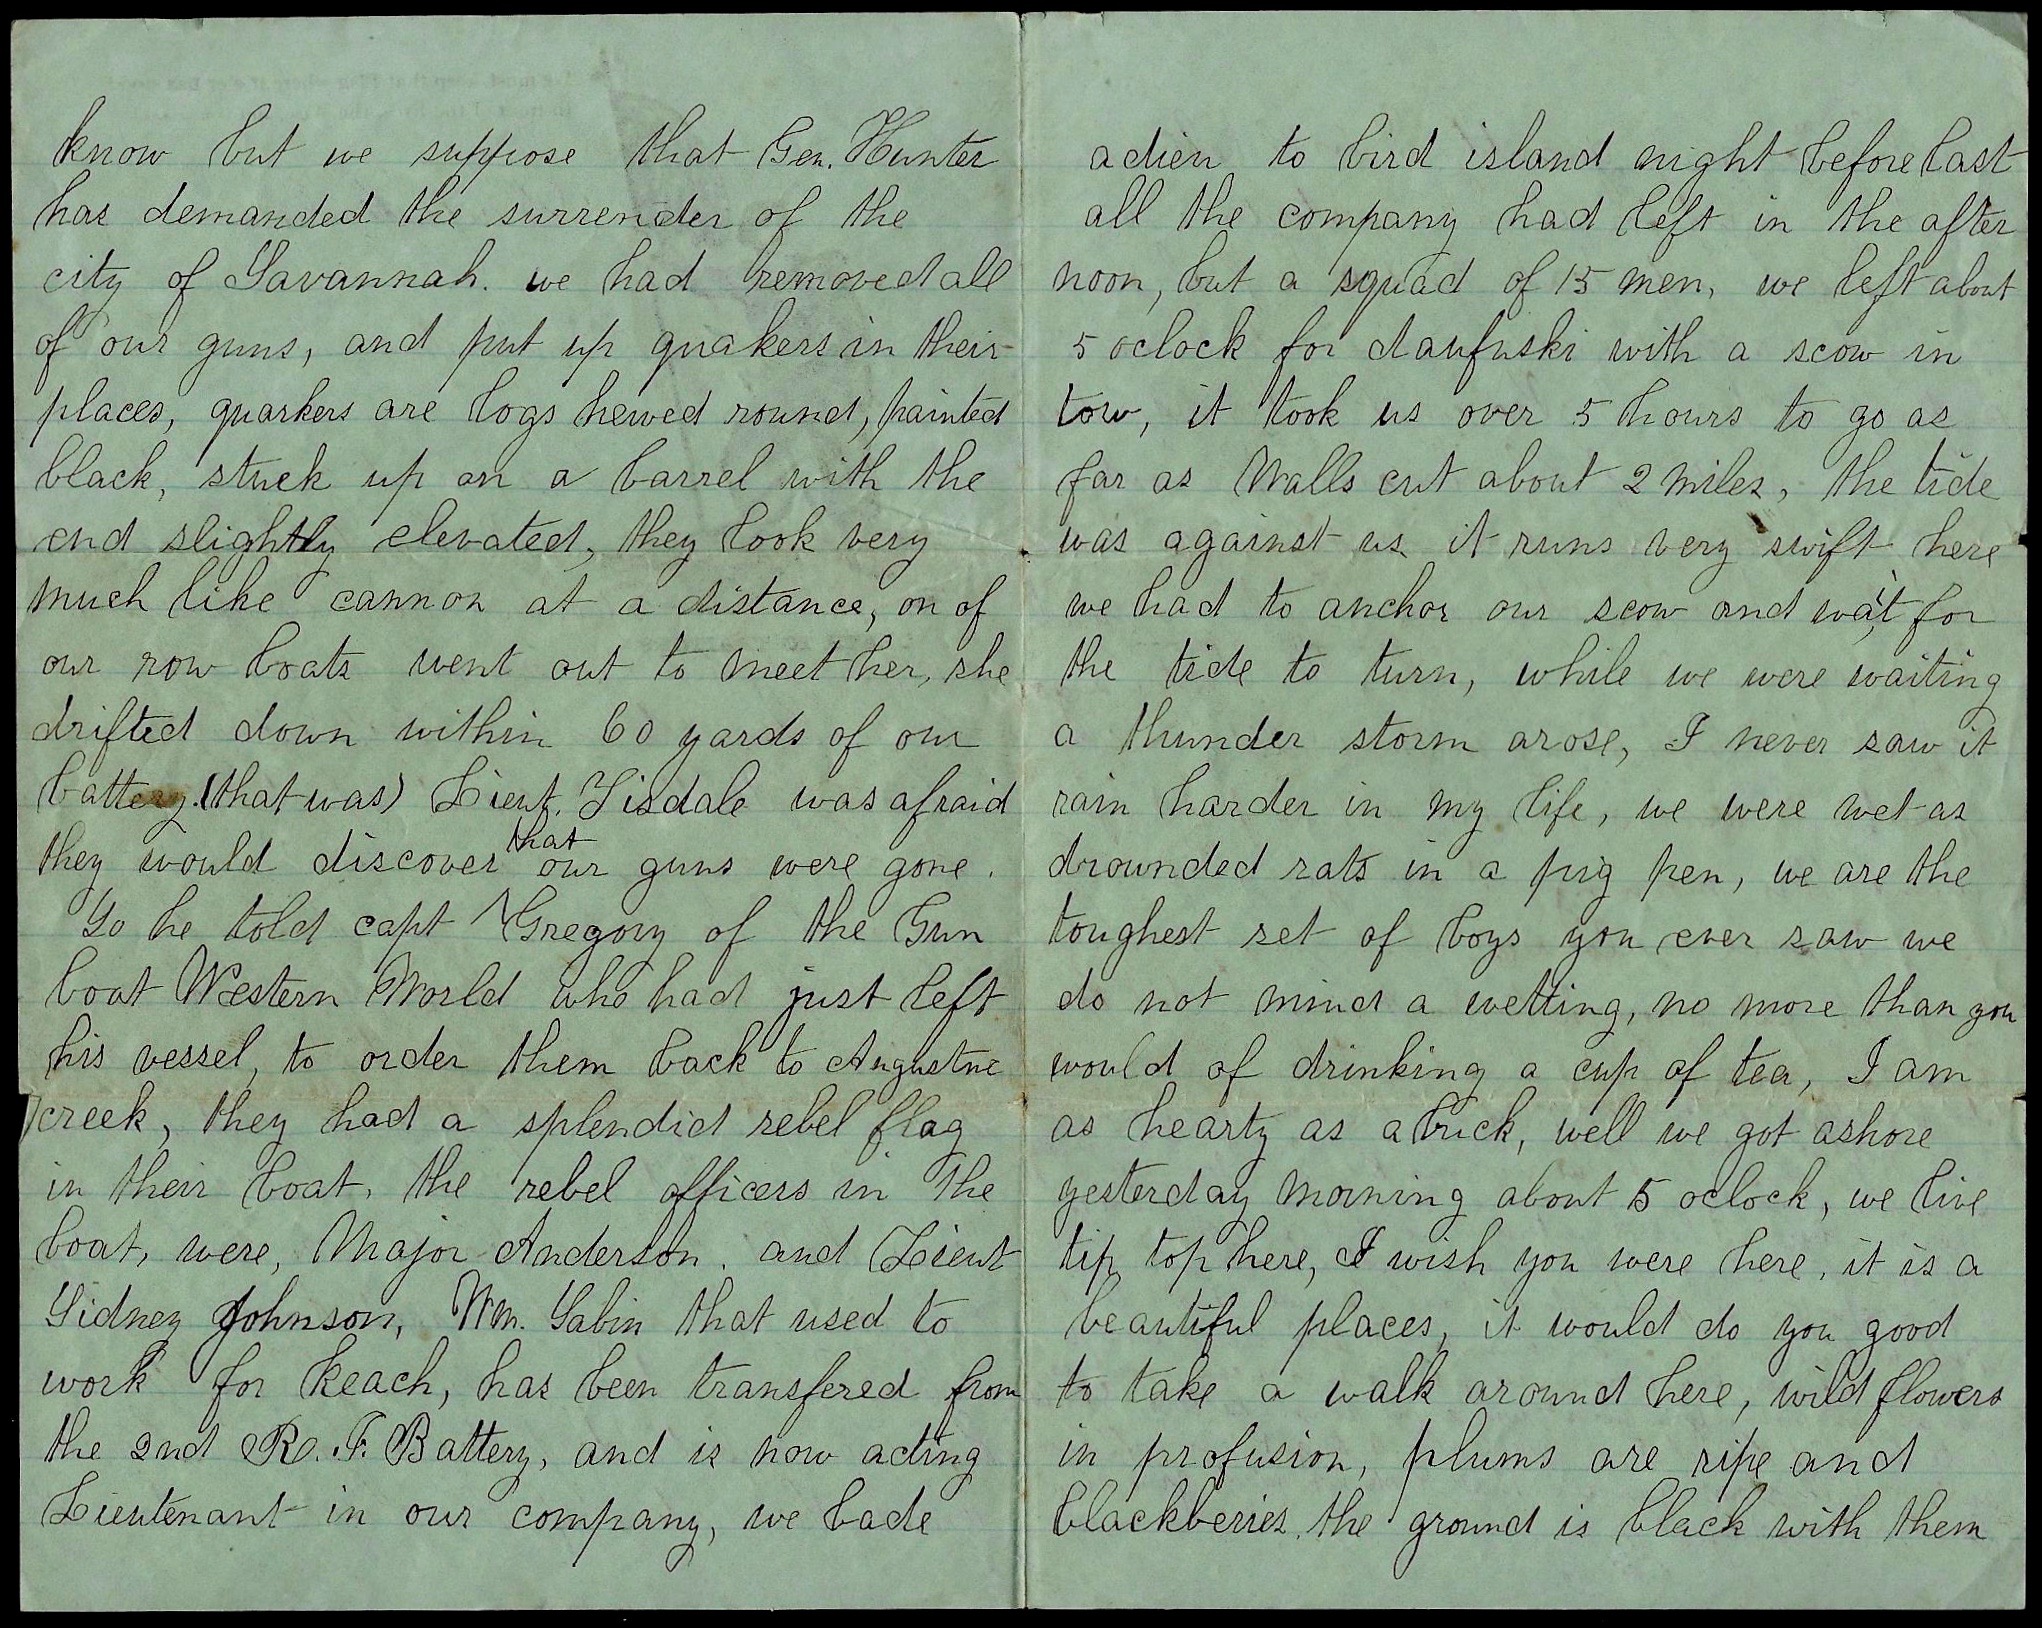 know but we suppose that Gen. Hunter
has demanded the surrender of the
city of Savannah. we had removed all
of our guns, and put up quakers in their
places, quarkers are logs hewed round, painted
black, stuck up on a barrel with the
end slightly elevated, they look very
much like cannon at a distance, on of
our row boats went out to meet her, she
drifted down within 60 yards of our
battery. (that was) Lieut. Tisdale was afraid
they would discover that our guns were gone.
So he told capt Gregory of the Gun
boat Western World who had just left
his vessel, to order them back to Augustne
creek, they had a splendid rebel flag
in their boat, the rebel officers in the
boat, were, Major Anderson. and Lieut
Sidney Johnson, Wm. Sabin that used to
work for Keach, has been transfered from
the 2nd R. I. Battery, and is now acting
Lieutenant in our company, we bade
adieu to bird island night before last
all the company had left in the after
noon, but a squad of 15 men, we left about
5 oclock for daufuski with a scow in
tow, it took us over 5 hours to go as
far as Walls cut about 2 miles, the tide
was against us it runs very swift here
we had to anchor our scow and wait for
the tide to turn, while we were waiting
a thunder storm arose, I never saw it
rain harder in my life, we were wet as
drownded rats in a pig pen, we are the
toughest set of boys you ever saw we
do not mind a wetting, no more than you
would of drinking a cup of tea, I am
as hearty as a buck, well we got ashore
yesterday morning about 5 oclock, we live
tip top here, I wish you were here, it is a
beautiful places, it would do you good
to take a walk around here, wild flowers
in profusion, plums are ripe and
blackberries. the ground is black with them